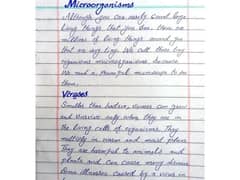 Microorganisms
Although you can easily count large
living things that you see, there are
millions of living things around you
that no eye sees. We call these tiny
organisms microorganisms because
We need a powerful microscope to see
them.
Viruses
Smaller than bacteria, viruses can grow
and survive only when they are in
the living cells of organisms. They
multiply in warm and moist places
They are harmful to animals and
plants and can cause many diseases
Some illnesses caused by a virus in